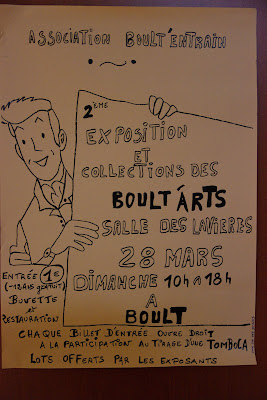 ASSOCIATION BOULT'ENTRAIN
2ÈME
EXPOSITION
ET
COLLECTIONS DES
BOULT'ARTS
SALLE DES LAVIERES
28 MARS
DIMANCHE 10H A 18H
A
BOULT
ENTRÉE 1€
(-12 ANS GRATUIT)
BUVETTE
ET
RESTAURATION
CHAQUE BILLET D'ENTRÉE OUVRE DROIT
A LA PARTICIPATION AU TIRAGE D'UNE TOMBOLA
LOTS OFFERTS PAR LES EXPOSANTS